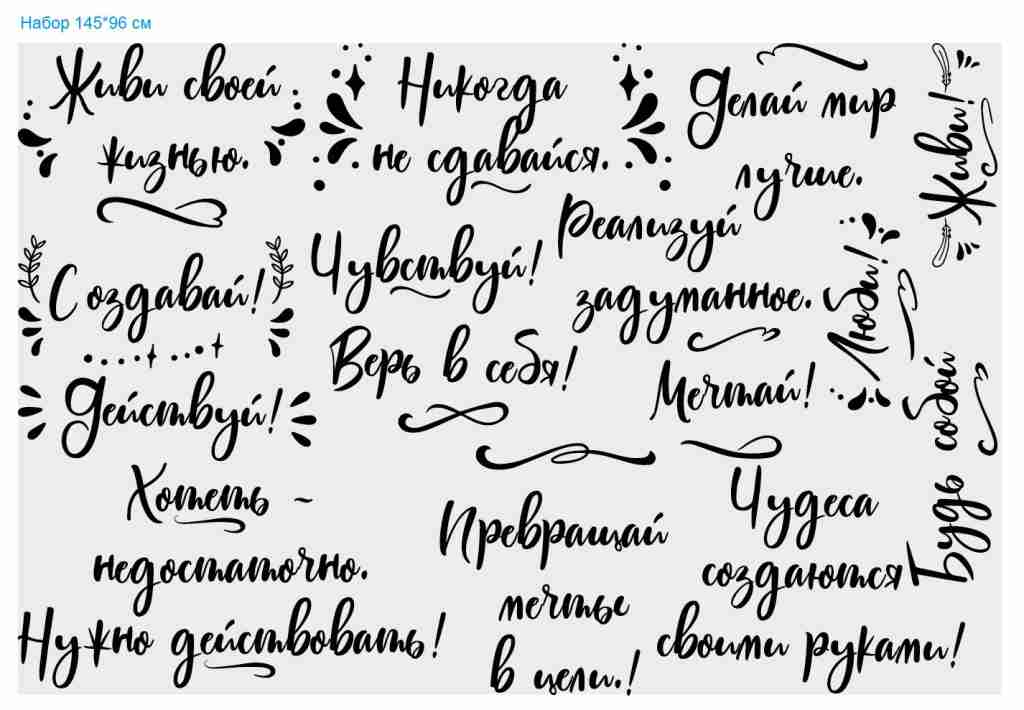 Набор 145*96 см
Живи своей
жизнью.
Никогда
не сдавайся.
Делай мир
лучше.
Живи!
Создавай!
Чувствуй!
Реализуй
задуманное.
Люби!
Действуй!
Верь в себя!
Мечтай!
Будь собой
Хотеть -
недостаточно.
Нужно действовать!
Превращай
мечты
в цели.!
Чудеса
создаются
своими руками!